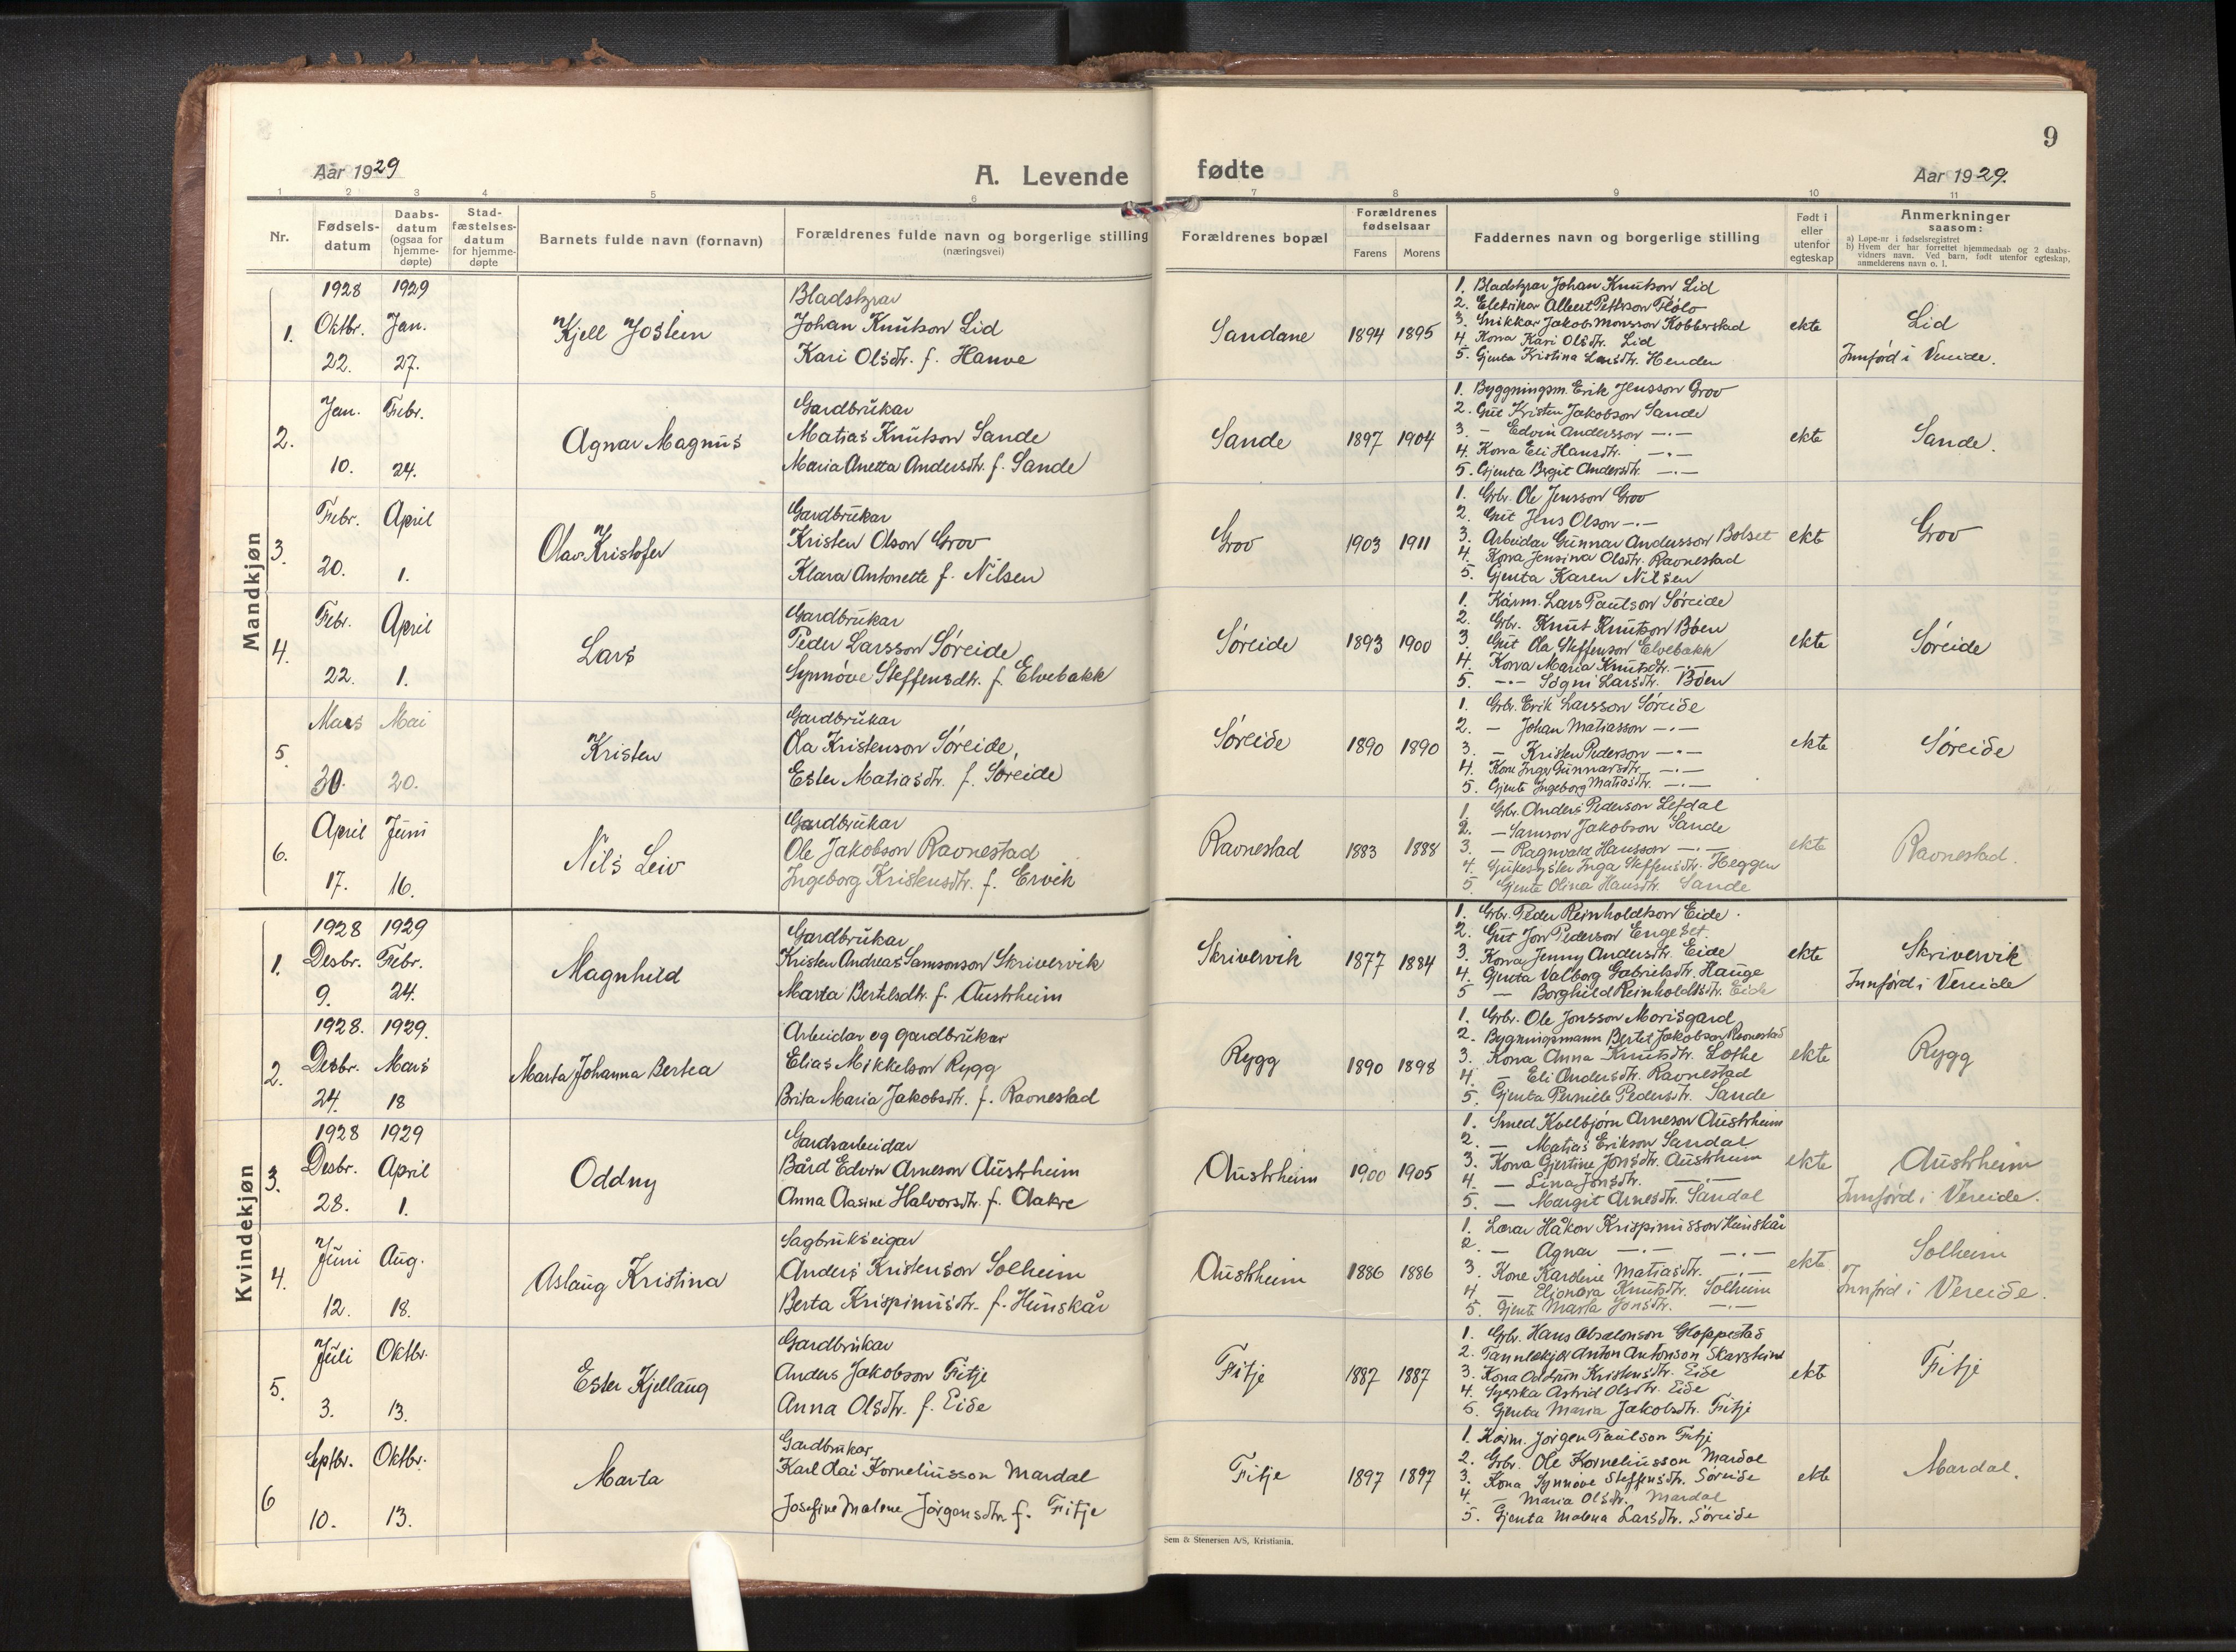 9
Aar 1929
A. Levende
fødte
Aar 1929.
1 2 3 4 5 6 7 8 9 10 11
Nr.
Fødsels-
datum
Daabs-
datum
(ogsaa for
hjemme-
døpte)
Stad-
fæstelses-
datum
for hjemme-
døpte
Barnets fulde navn (fornavn)
Forældrenes fulde navn og borgerlige stilling
(næringsvei)
Forældrenes bopæl
Forældrenes
fødselsaar
Farens Morens
Faddernes navn og borgerlige stilling
Født i
eller
utenfor
egteskap
Anmerkninger
saasom:
a) Løpe-nr i fødselsregistret
b) Hvem der har forrettet hjemmedaab og 2 daabs-
vidners navn. Ved barn, født utenfor egteskap,
anmelderens navn o. l.
Mandkjøn
1.
1928 Oktbr. 22.
1929 Jan. 27.
Kjell Jostein
Bladstyrar
Johan Knutson Lid
Kari Olsdtr. f. Hauve
Sandane
1894 1895
1. Bladstyrar Johan Knutson Lid
2. Elektrikar Albert Petterson Flölo
3. Snikkar Jakob Monsson Kobberstad
4. Kona Kari Olsdtr. Lid
5. Gjenta Kristina Larsdtr. Henden
ekte
Lid
Innførd i Vereide.
2.
Jan. 10.
Febr. 24.
Agnar Magnus
Gardbrukar
Matias Knutson Sande
Maria Anetta Andersdtr. f. Sande
Sande
1897 1904
1. Byggningsm. Erik Jensson Grov
2. Gut Kristen Jakobson Sande
3. — Edvin Andersson —.—
4. Kona Eli Hansdtr. —.—
5. Gjenta Brgit Andersdtr. —.—
ekte
Sande.
3.
Febr. 20.
April 1.
Olav Kristofer
Gardbrukar
Kristen Olson Grov
Klara Antonette f. Nilsen
Grov
1903 1911
1. Grbr. Ole Jensson Grov
2. Gut Jens Olson —.—
3. Arbeidar Gunnar Andersson Bolset
4. Kona Jensina Olsdtr. Ravnestad
5. Gjenta Karen Nilsen
ekte
Grov
4.
Febr. 22.
April 1.
Lars
Gardbrukar
Peder Larsson Søreide
Synnøve Steffensdtr. f. Elvebakk
Søreide
1893 1900
1. Kårm. Lars Paulson Søreide
2. Grbr. Knut Knutson Bøen
3. Gut Ola Steffenson Elvebakk
4. Kona Maria Knutsdtr. —.—
5. —.— Sogni Larsdtr. Bøen
ekte
Søreide
5.
Mars 30.
Mai 20.
Kristen
Gardbrukar
Ola Kristenson Søreide,
Ester Matiasdtr. f. Søreide
Søreide
1890 1890
1. Grbr. Erik Larsson Søreide
2. — Johan Matiasson —.—
3. — Kristen Pederson —.—
4. Kone Inger Gunnarsdtr. —.—
5. Gjente Ingeborg Matiasdtr. —.—
ekte
Søreide
6.
April 17.
Juni 16.
Nils Leiv
Gardbrukar
Ole Jakobson Ravnestad
Ingeborg Kristensdtr. f. Ervik
Ravnestad
1883 1888
1. Grbr. Anders Pederson Lefdal
2. — Samson Jakobson Sande
3. — Ragnvald Hansson —.—
4. Sjukesyster Inga Steffensdtr. Heggen
5. Gjente Olina Hansdtr. Sande
ekte
Ravnestad.
Kvindekjøn
1.
1928 Desbr. 9.
1929 Febr. 24.
Magnhild
Gardbrukar
Kristen Andreas Samsonson Skrivervik
Marta Bertelsdtr. f. Austrheim
Skrivervik
1877 1884
1. Grbr. Peder Reinholdtson Eide.
2. Gut Jon Pederson Engeset.
3. Kona Jenny Andersdtr. Eide
4. Gjenta Valborg Gabrielsdtr. Hauge
5 — Borghild Reinholdtsdtr. Eide
ekte
Skrivervik
Innførd i Vereide
2.
1928. Desbr. 24.
1929. Mars 18
Marta Johanna Bertea
Arbeidar og gardbrukar
Elias Mikkelson Rygg
Brita Maria Jakobsdtr. f. Ravnestad
Rygg
1890 1898
1. Grbr. Ole Jonsson Morisgard
2. Bygningsmann Bertel Jakobson Ravnestad
3. Kona Anna Knutsdtr. Lothe
4. — Eli Andersdtr. Ravnestad
5. Gjenta Pernille Pedersdtr. Sande
ekte
Rygg
3.
1928 Desbr. 28.
1929 April 1.
Oddny
Gardsarbeidar
Bård Edvin Arneson Austrheim
Anna Aasine Halvorsdtr. f. Aakre
Austrheim
1900 1905
1. Smed Kolbjørn Arneson Austrheim
2. — Matias Erikson Sandal
3. Kona Gjertine Jonsdtr. Austrheim
4. — Lina Jonsdtr. —.—
5. — Margit Arnesdtr. Sandal
ekte
Austrheim
Innførd i Vereide.
4.
Juni 12.
Aug. 18.
Aslaug Kristina
Sagbrukseigar
Anders Kristenson Solheim
Berta Krispinusdtr. f. Hunskår
Austrheim
1886 1886
1. Lærar Håkon Krispinusson Hunskår
2. — Agnar —.— —.—
3. Kone Kardine Matiasdtr. —.—
4 — Elionora Knutsdtr. Solheim
5. Gjente Marta Jonsdtr. —.—
ekte
Solheim
Innførd i Vereide.
5.
Juli 3.
Oktbr. 13.
Ester Kjellaug
Gardbrukar
Anders Jakobson Fitje
Anna Olsdtr. f. Eide
Fitje
1887 1887
1. Grbr. Hans Absalonson Gloppestad
2. Tannlækjar Anton Antonson Skarstein
3. Kona Oddrun Kristensdtr. Eide
4. Syerska Astrid Olsdtr. Eide
5. Gjenta Maria Jakobsdtr. Fitje
ekte
Fitje
6
Septbr. 10.
Oktbr. 13.
Marta
Gardbrukar
Karl Kai Korneliusson Mardal
Josefine Malene Jörgensdtr. f. Fitje
Fitje
1897 1897
1. Kårm. Jørgen Paulson Fitje
2. Grbr. Ole Korneliusson Mardal
3. Kona Synnøve Steffensdtr. Søreide
4. — Maria Olsdtr. Mardal
5. Gjenta Malena Larsdtr. Søreide
ekte
Mardal.
Sem & Stenersen A/S, Kristiania.